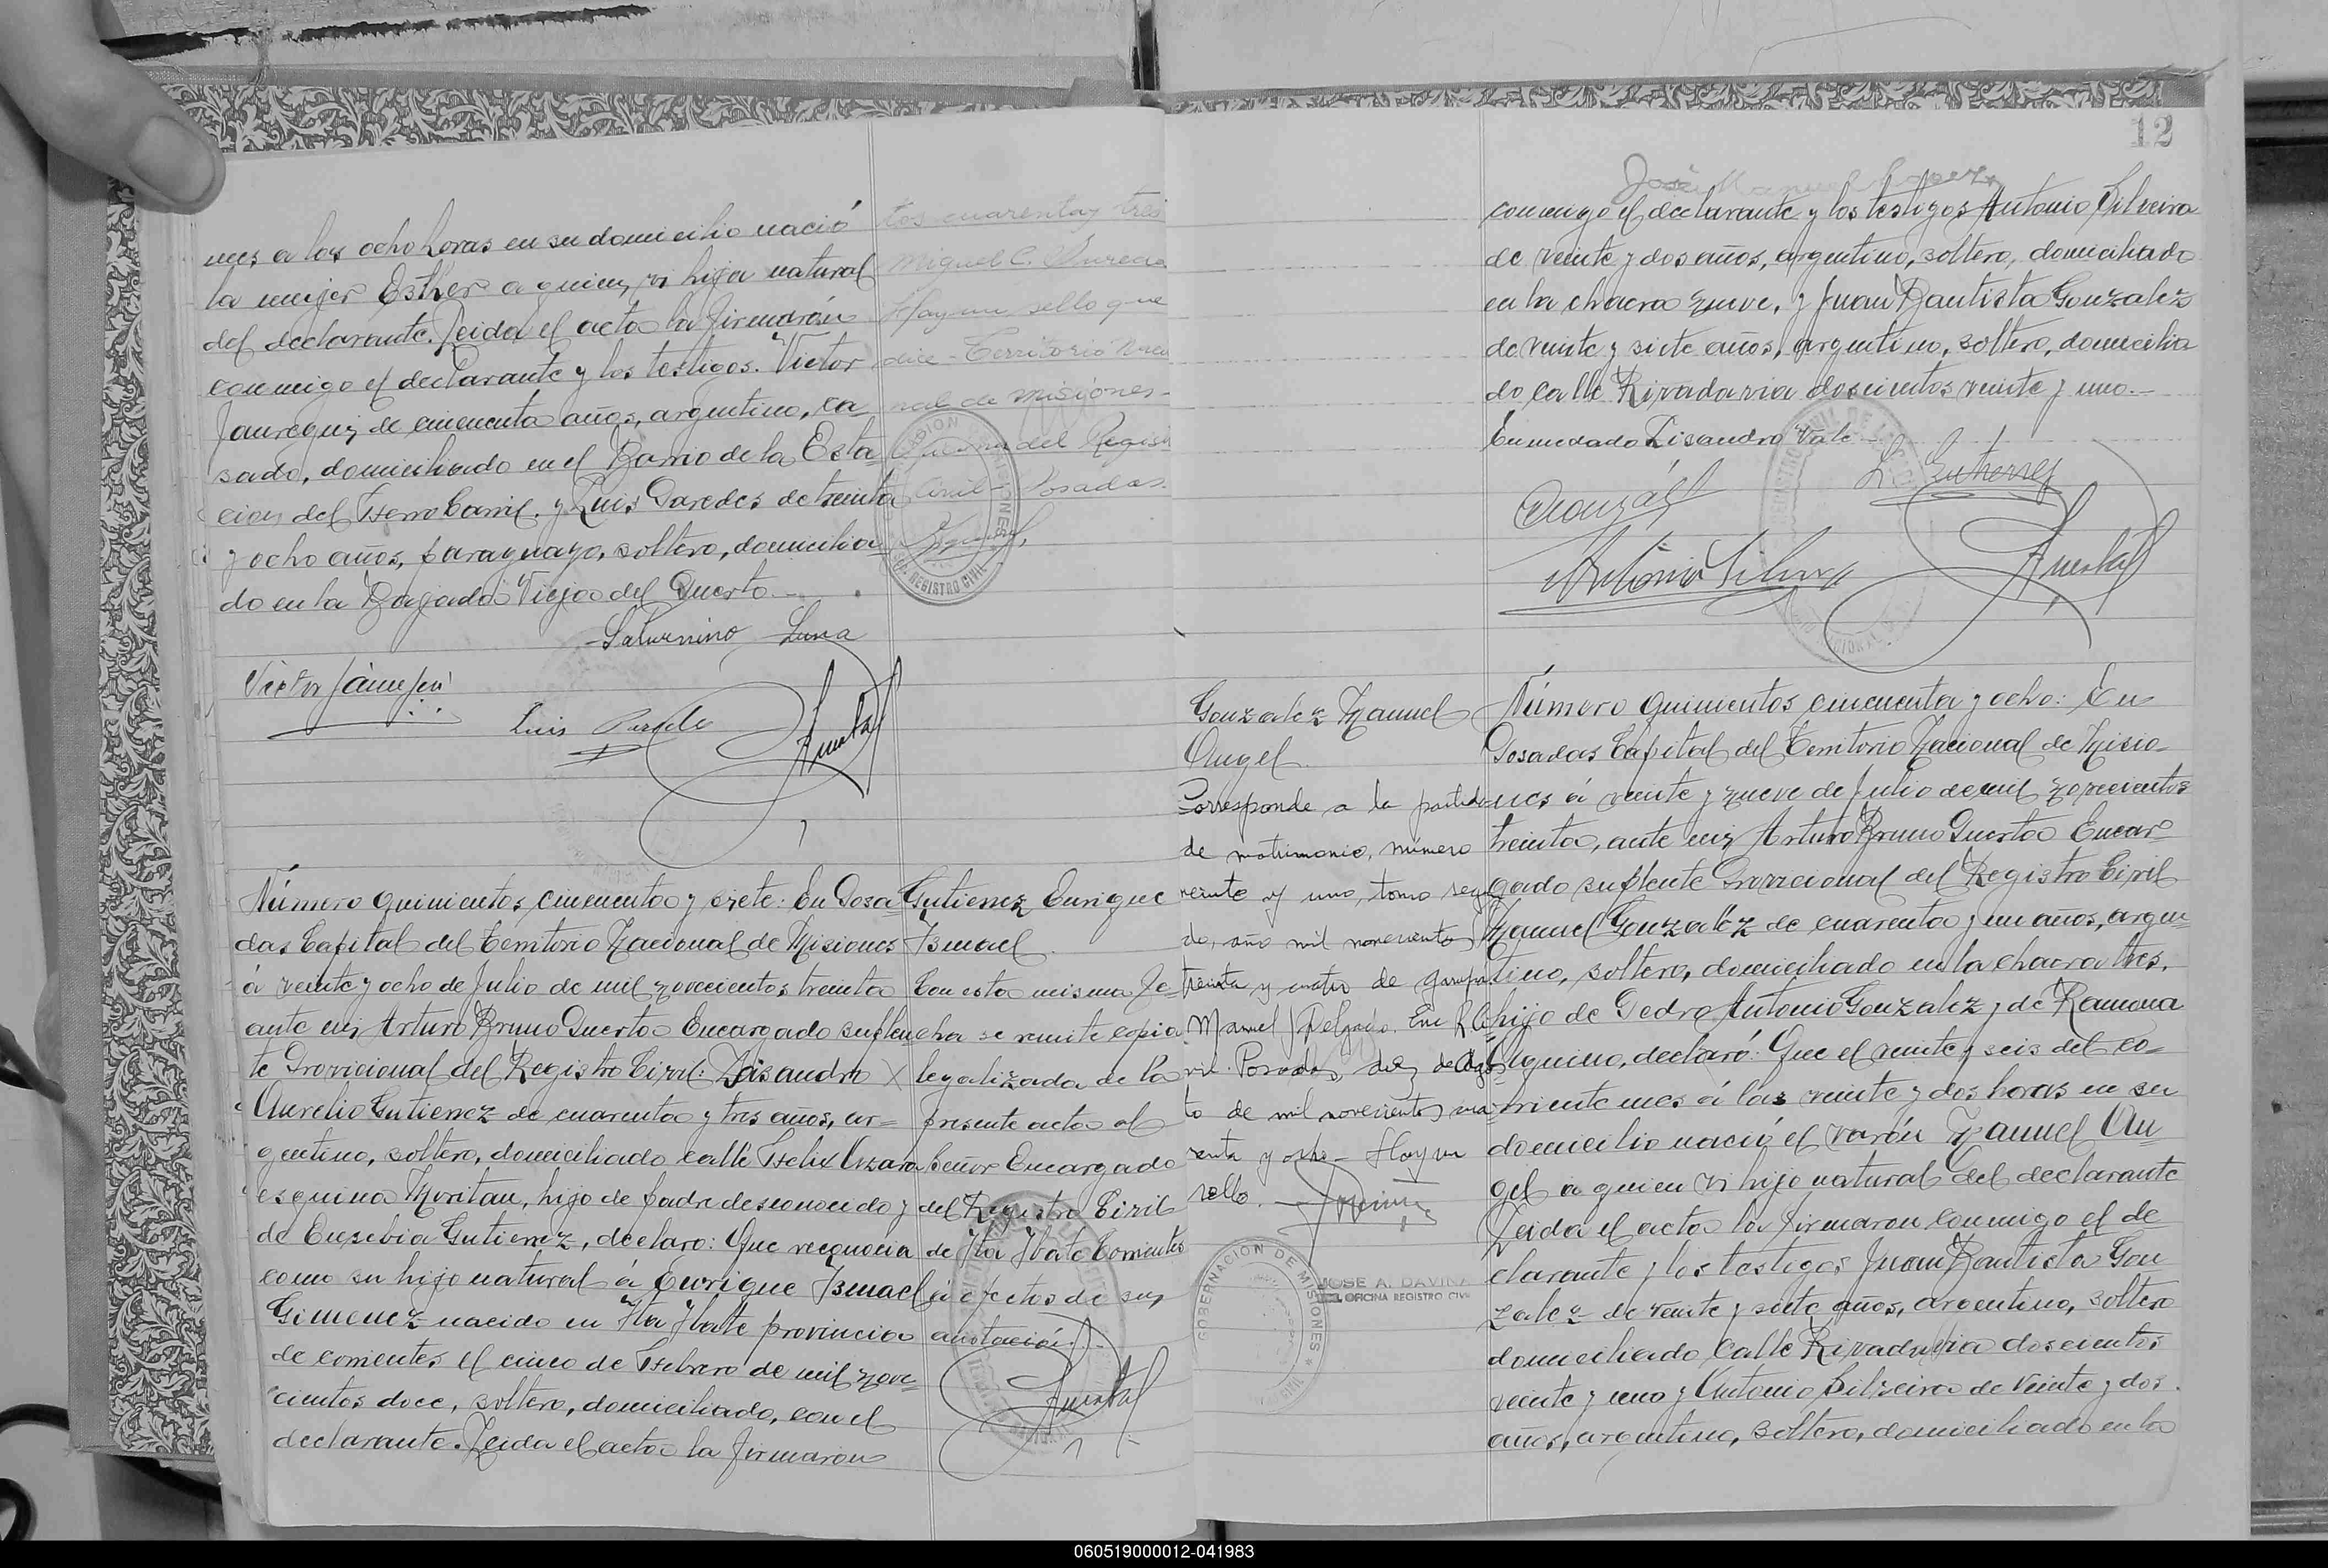 mes a las ocho horas en su domicilio nació
la mujer Esther a quien vi hija natural
del declarante. Leida el acta la firmarón
conmigo el declarante y los testigos. Victor
Jauregui de cincuenta años, argentino, ca
sado, domiciliado en el Barrio de la Esta
cion del Ferro Carril. y Luis Paredes de treinta
y ocho años, paraguayo, soltero, domicilia
do en la Bajada Vieja del Puerto.-
Saturnino Luna
Luis
tos cuarenta y tres
Miguel C.
Hay un sello que
dice - Territorio Nacio
nal de Misiones-
Oficina del Registro
Civil - Posadas.
REGISTRO CIVIL
Número quinientos cincuenta y siete: En Posa
das Capital del Territorio Nacional de Misiones
á veinte y ocho de Julio de mil novecientos treinta
ante mi, Arturo Bruno Puerta Encargado suplen
te Provicional del Registro Civil: Lisandro
Aurelio Gutierrez de cuarenta y tres años, ar=
gentino, soltero, domiciliado calle Felix Azara
esquina Moritan, hijo de padre desconocido y
de Eusebia Gutierrez, declaro: Que reconocia
como su hijo natural á Enrique Ismael
Gimenez nacido en Ita Ibate provincia
de corrientes el cinco de Febrero de mil nove-
cientos doce, soltero, domiciliado, con el
declarante. Leida el acta la firmaron
Gutierrez Enrique
Ismael
Con esta misma fe-
cha se remite copia
legalizada de la
presente acta al
Señor Encargado
del Registro Civil
de Ita Ibate Corrientes
á efectos de su
anotación.-
12
José Manuel Lopez
conmigo el declarante y los testigos Antonio Silveira
de veinte y dos años, argentino, soltero, domiciliado
en la chacra nueve, y Juan Bautista Gonzalez
de veinte y siete años, argentino, soltero, domicilia
do calle Rivadavia doscientos veinte y uno.-
Enmedado Lisandro Vale-
L. Gutierrez
Gonzalez Manuel
Angel
Corresponde a la partida
de matrimonio, número
veinte y uno, tomo segun
do, año mil novecientos
treinta y cuatro de Garupa
Manuel Delgado. Enc R. Ci
vil. Posadas, diez de Agos
to de mil novecientos cua
renta y ocho - Hay un
sello.
GOBERNACION DE MISIONES
JOSE A. DAVIÑA
OFICINA REGISTRO CIVIL
Número quinientos cincuenta y ocho: En
Posadas Capital del Territorio Nacional de Misio-
nes á veinte y nueve de Julio de mil novecientos
treinta, ante mi, Arturo Bruno Puerta Encar
gado suplente Provicional del Registro Civil
Manuel Gonzalez de cuarenta y un años, argen
tino, soltero, domiciliado en la chacra tres,
hijo de Pedro Antonio Gonzalez y de Ramona
Aquino, declaró: Que el veinte y seis del co-
rriente mes á las veinte y dos horas en su
domicilio nació el varón Manuel An
gel a quien vi hijo natural del declarante
Leida el acta la firmaron conmigo el de
clarante y los testigos Juan Bautista Gon
zalez de veinte y siete años, argentino, soltero
domiciliado calle Rivadavia doscientos
veinte y uno y Antonio Silveira de veinte y dos
años, argentino, soltero, domiciliado en la
060519000012-041983